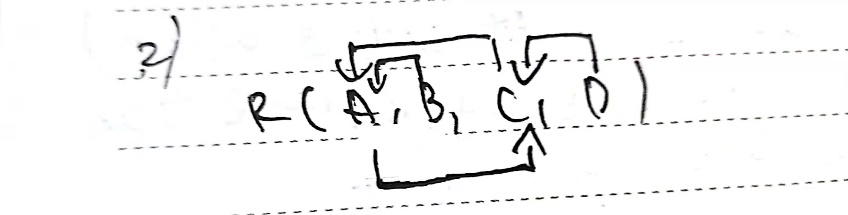 2)
R(A, B, C, D)